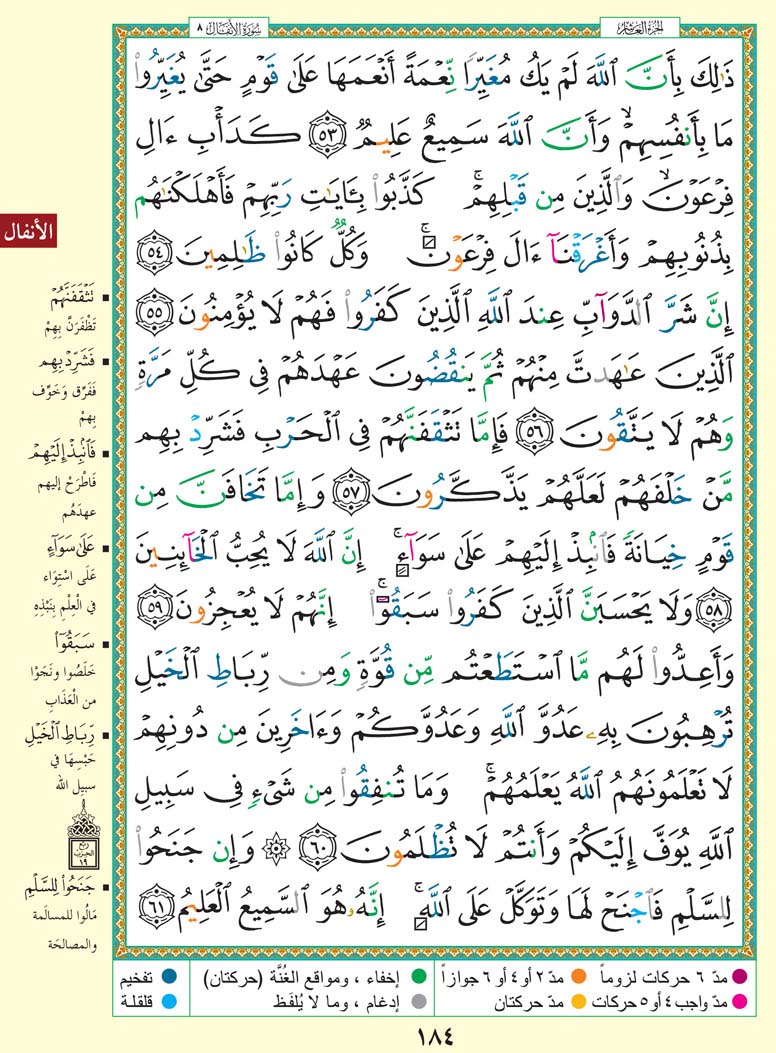 الجزء العاشر
سورة الأنفال ٨
ذَٰلِكَ بِأَنَّ ٱللَّهَ لَمْ يَكُ مُغَيِّرًا نِّعْمَةً أَنْعَمَهَا عَلَىٰ قَوْمٍ حَتَّىٰ يُغَيِّرُوا۟
مَا بِأَنفُسِهِمْ ۙ وَأَنَّ ٱللَّهَ سَمِيعٌ عَلِيمٌ ٥٣ كَدَأْبِ ءَالِ
فِرْعَوْنَ ۙ وَٱلَّذِينَ مِن قَبْلِهِمْ ۚ كَذَّبُوا۟ بِـَٔايَـٰتِ رَبِّهِمْ فَأَهْلَكْنَـٰهُم
بِذُنُوبِهِمْ وَأَغْرَقْنَآ ءَالَ فِرْعَوْنَ ۚ وَكُلٌّ كَانُوا۟ ظَـٰلِمِينَ ٥٤
إِنَّ شَرَّ ٱلدَّوَآبِّ عِندَ ٱللَّهِ ٱلَّذِينَ كَفَرُوا۟ فَهُمْ لَا يُؤْمِنُونَ ٥٥
ٱلَّذِينَ عَـٰهَدتَّ مِنْهُمْ ثُمَّ يَنقُضُونَ عَهْدَهُمْ فِى كُلِّ مَرَّةٍ
وَهُمْ لَا يَتَّقُونَ ٥٦ فَإِمَّا تَثْقَفَنَّهُمْ فِى ٱلْحَرْبِ فَشَرِّدْ بِهِم
مَّنْ خَلْفَهُمْ لَعَلَّهُمْ يَذَّكَّرُونَ ٥٧ وَإِمَّا تَخَافَنَّ مِن
قَوْمٍ خِيَانَةً فَٱنۢبِذْ إِلَيْهِمْ عَلَىٰ سَوَآءٍ ۚ إِنَّ ٱللَّهَ لَا يُحِبُّ ٱلْخَآئِنِينَ
٥٨ وَلَا يَحْسَبَنَّ ٱلَّذِينَ كَفَرُوا۟ سَبَقُوٓا۟ ۚ إِنَّهُمْ لَا يُعْجِزُونَ ٥٩
وَأَعِدُّوا۟ لَهُم مَّا ٱسْتَطَعْتُم مِّن قُوَّةٍ وَمِن رِّبَاطِ ٱلْخَيْلِ
تُرْهِبُونَ بِهِۦ عَدُوَّ ٱللَّهِ وَعَدُوَّكُمْ وَءَاخَرِينَ مِن دُونِهِمْ
لَا تَعْلَمُونَهُمُ ٱللَّهُ يَعْلَمُهُمْ ۚ وَمَا تُنفِقُوا۟ مِن شَىْءٍ فِى سَبِيلِ
ٱللَّهِ يُوَفَّ إِلَيْكُمْ وَأَنتُمْ لَا تُظْلَمُونَ ٦٠ ۞ وَإِن جَنَحُوا۟
لِلسَّلْمِ فَٱجْنَحْ لَهَا وَتَوَكَّلْ عَلَى ٱللَّهِ ۚ إِنَّهُۥ هُوَ ٱلسَّمِيعُ ٱلْعَلِيمُ ٦١
الأنفال
تَثْقَفَنَّهُمْ
تَظْفَرَنَّ بِهِمْ
فَشَرِّدْ بِهِم
فَفَرِّق وَخَوِّف
بِهِمْ
فَٱنۢبِذْ إِلَيْهِمْ
فَاطْرَحْ إليهم
عهدَهُم
عَلَىٰ سَوَآءٍ
عَلَى اسْتِوَاء
في الْعِلْمِ بِنَبْذِهِ
سَبَقُوٓا۟
خَلَصُوا ونَجَوْا
من الْعَذَابِ
رِّبَاطِ ٱلْخَيْلِ
حَبْسِهَا في
سبيل الله
ربع
الحزب
١٩
جَنَحُوا۟ لِلسَّلْمِ
مَالُوا للمسالَمة
والمصالحَة
مدّ ٦ حركات لزوماً
مدّ ٢ أو ٤ أو ٦ جوازاً
إخفاء ، ومواقع الغُنَّة (حركتان)
تفخيم
مدّ واجب ٤ أو ٥ حركات
مدّ حركتان
إدغام ، وما لا يُلفَظ
قلقلة
١٨٤